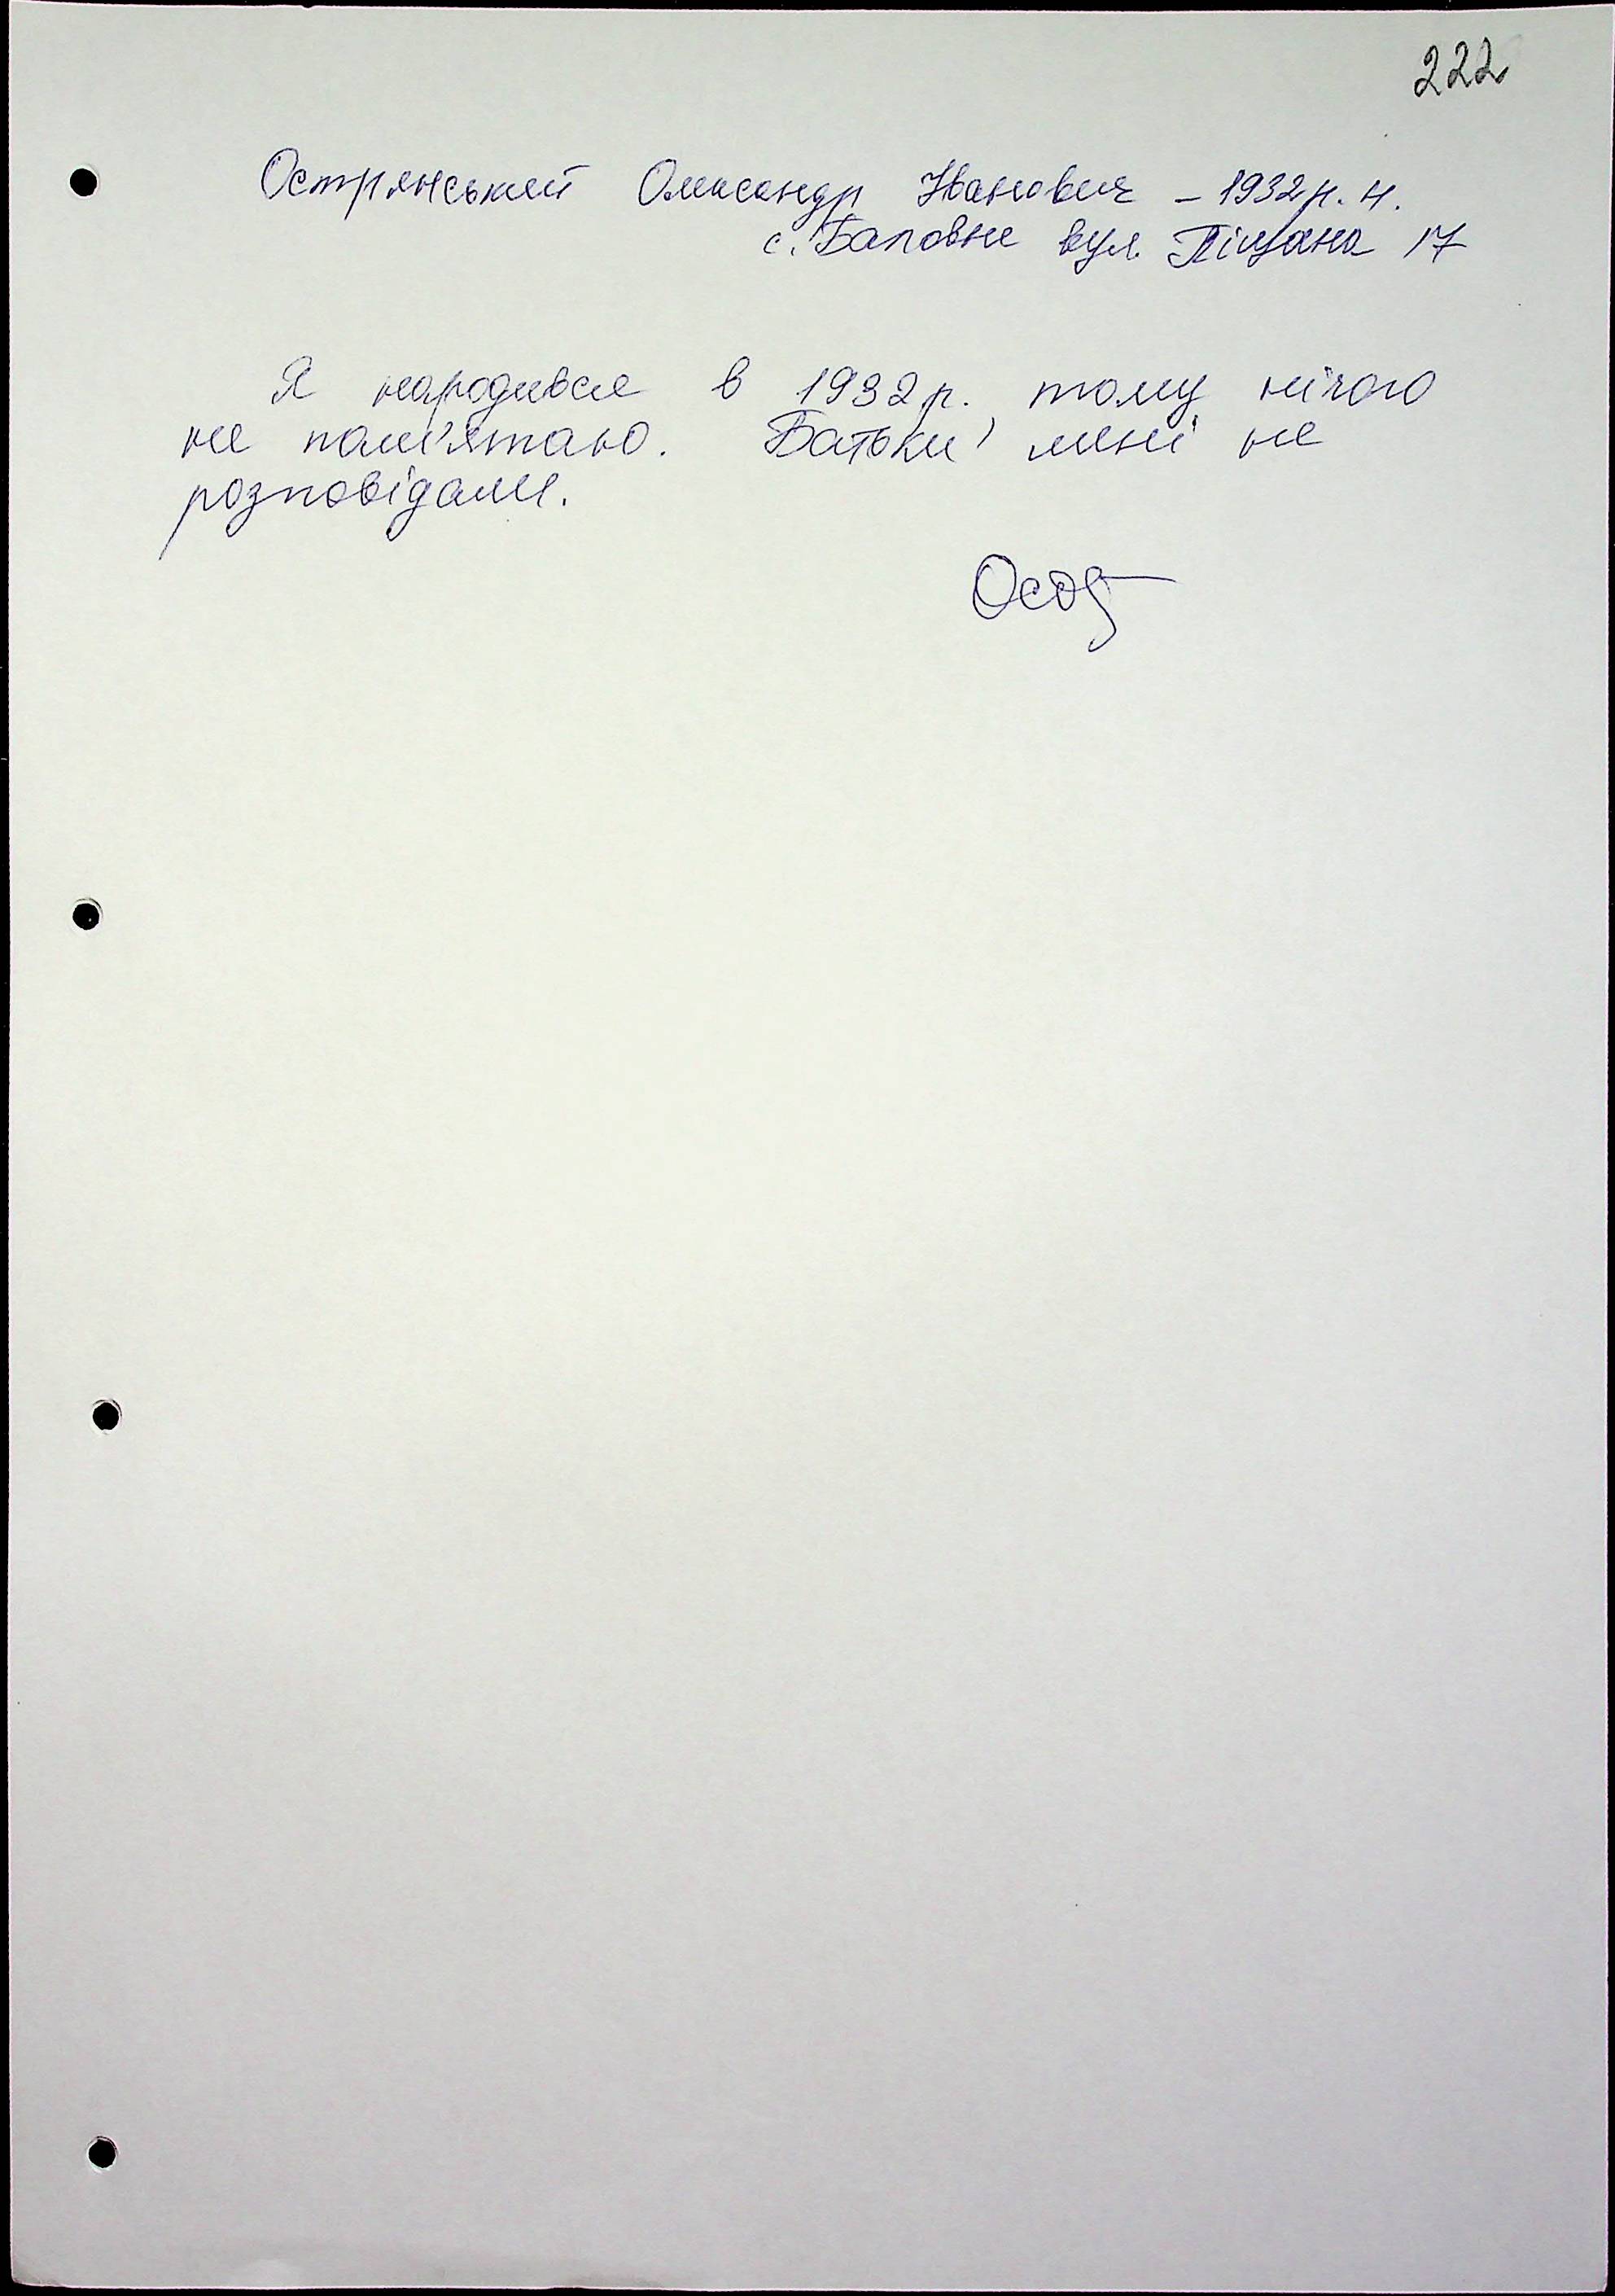 222
Острянський Олександр Іванович - 1932 р. н.
с. Баловне вул. Піщана 17
Я народився в 1932 р. тому нічого
не пам'ятаю. Батьки мені не
розповідали.